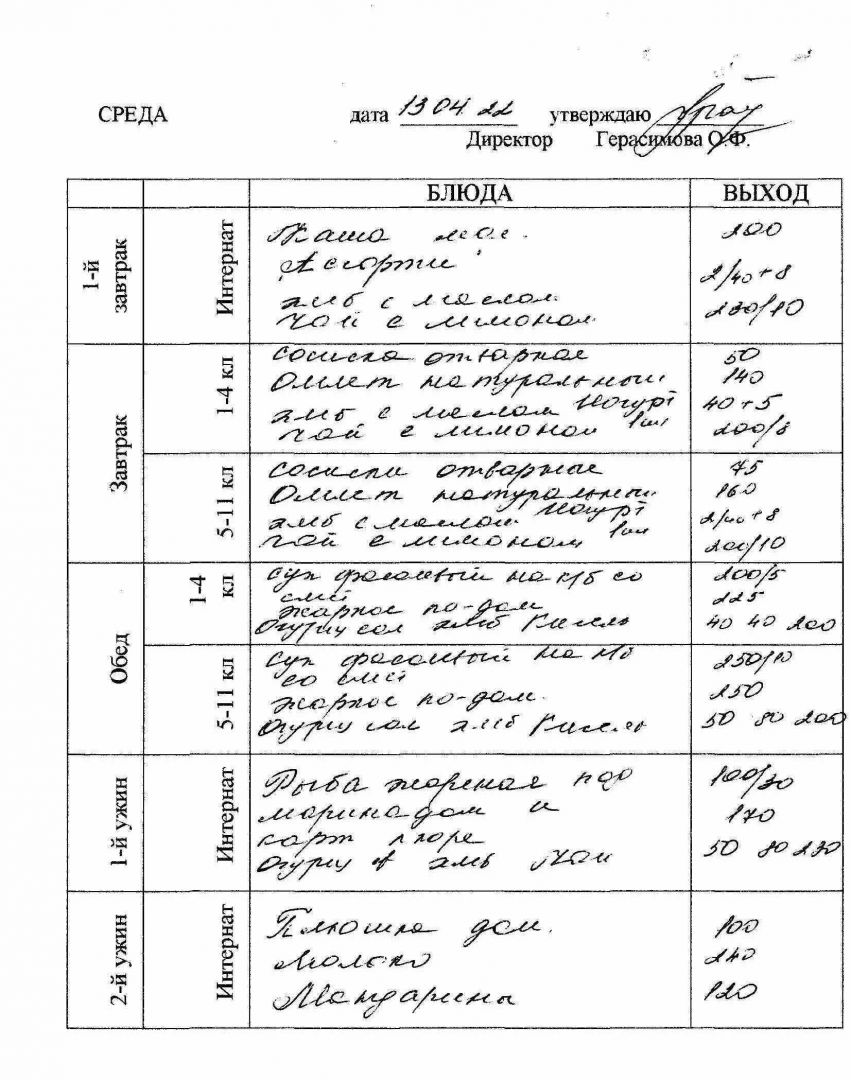 СРЕДА дата 13 04. 22 утверждаю
Директор Герасимова О.Ф.
БЛЮДА ВЫХОД
1-й завтрак Интернат
Каша мол. 200
"Ассорти"
2/40+8
хлб с маслом
чай с лимоном 230/10
Завтрак 1-4 кл
сосиска отварная 50
Омлет натуральный 140
хлб с маслом Йогурт 40+5
чай с лимоном 1шт 200/8
5-11 кл
сосиски отварные 75
Омлет натуральный 160
хлб с маслом Йогурт 2/40+8
чай с лимоном 1шт 200/10
Обед 1-4 кл
суп фасолевый на к/б со 200/5
смет 225
жаркое по-дом
Огурцы сол хлб Кисель 40 40 200
5-11 кл
суп фасолевый на к/б 250/10
со смет
жаркое по-дом. 250
Огурцы сол хлб Кисель 50 80 200
1-й ужин Интернат
Рыба жареная под 100/30
маринадом и
карт пюре 170
Огурцы хлб Чай 50 80 230
2-й ужин Интернат
Плюшка дом. 100
Молоко 240
Мандарины 120